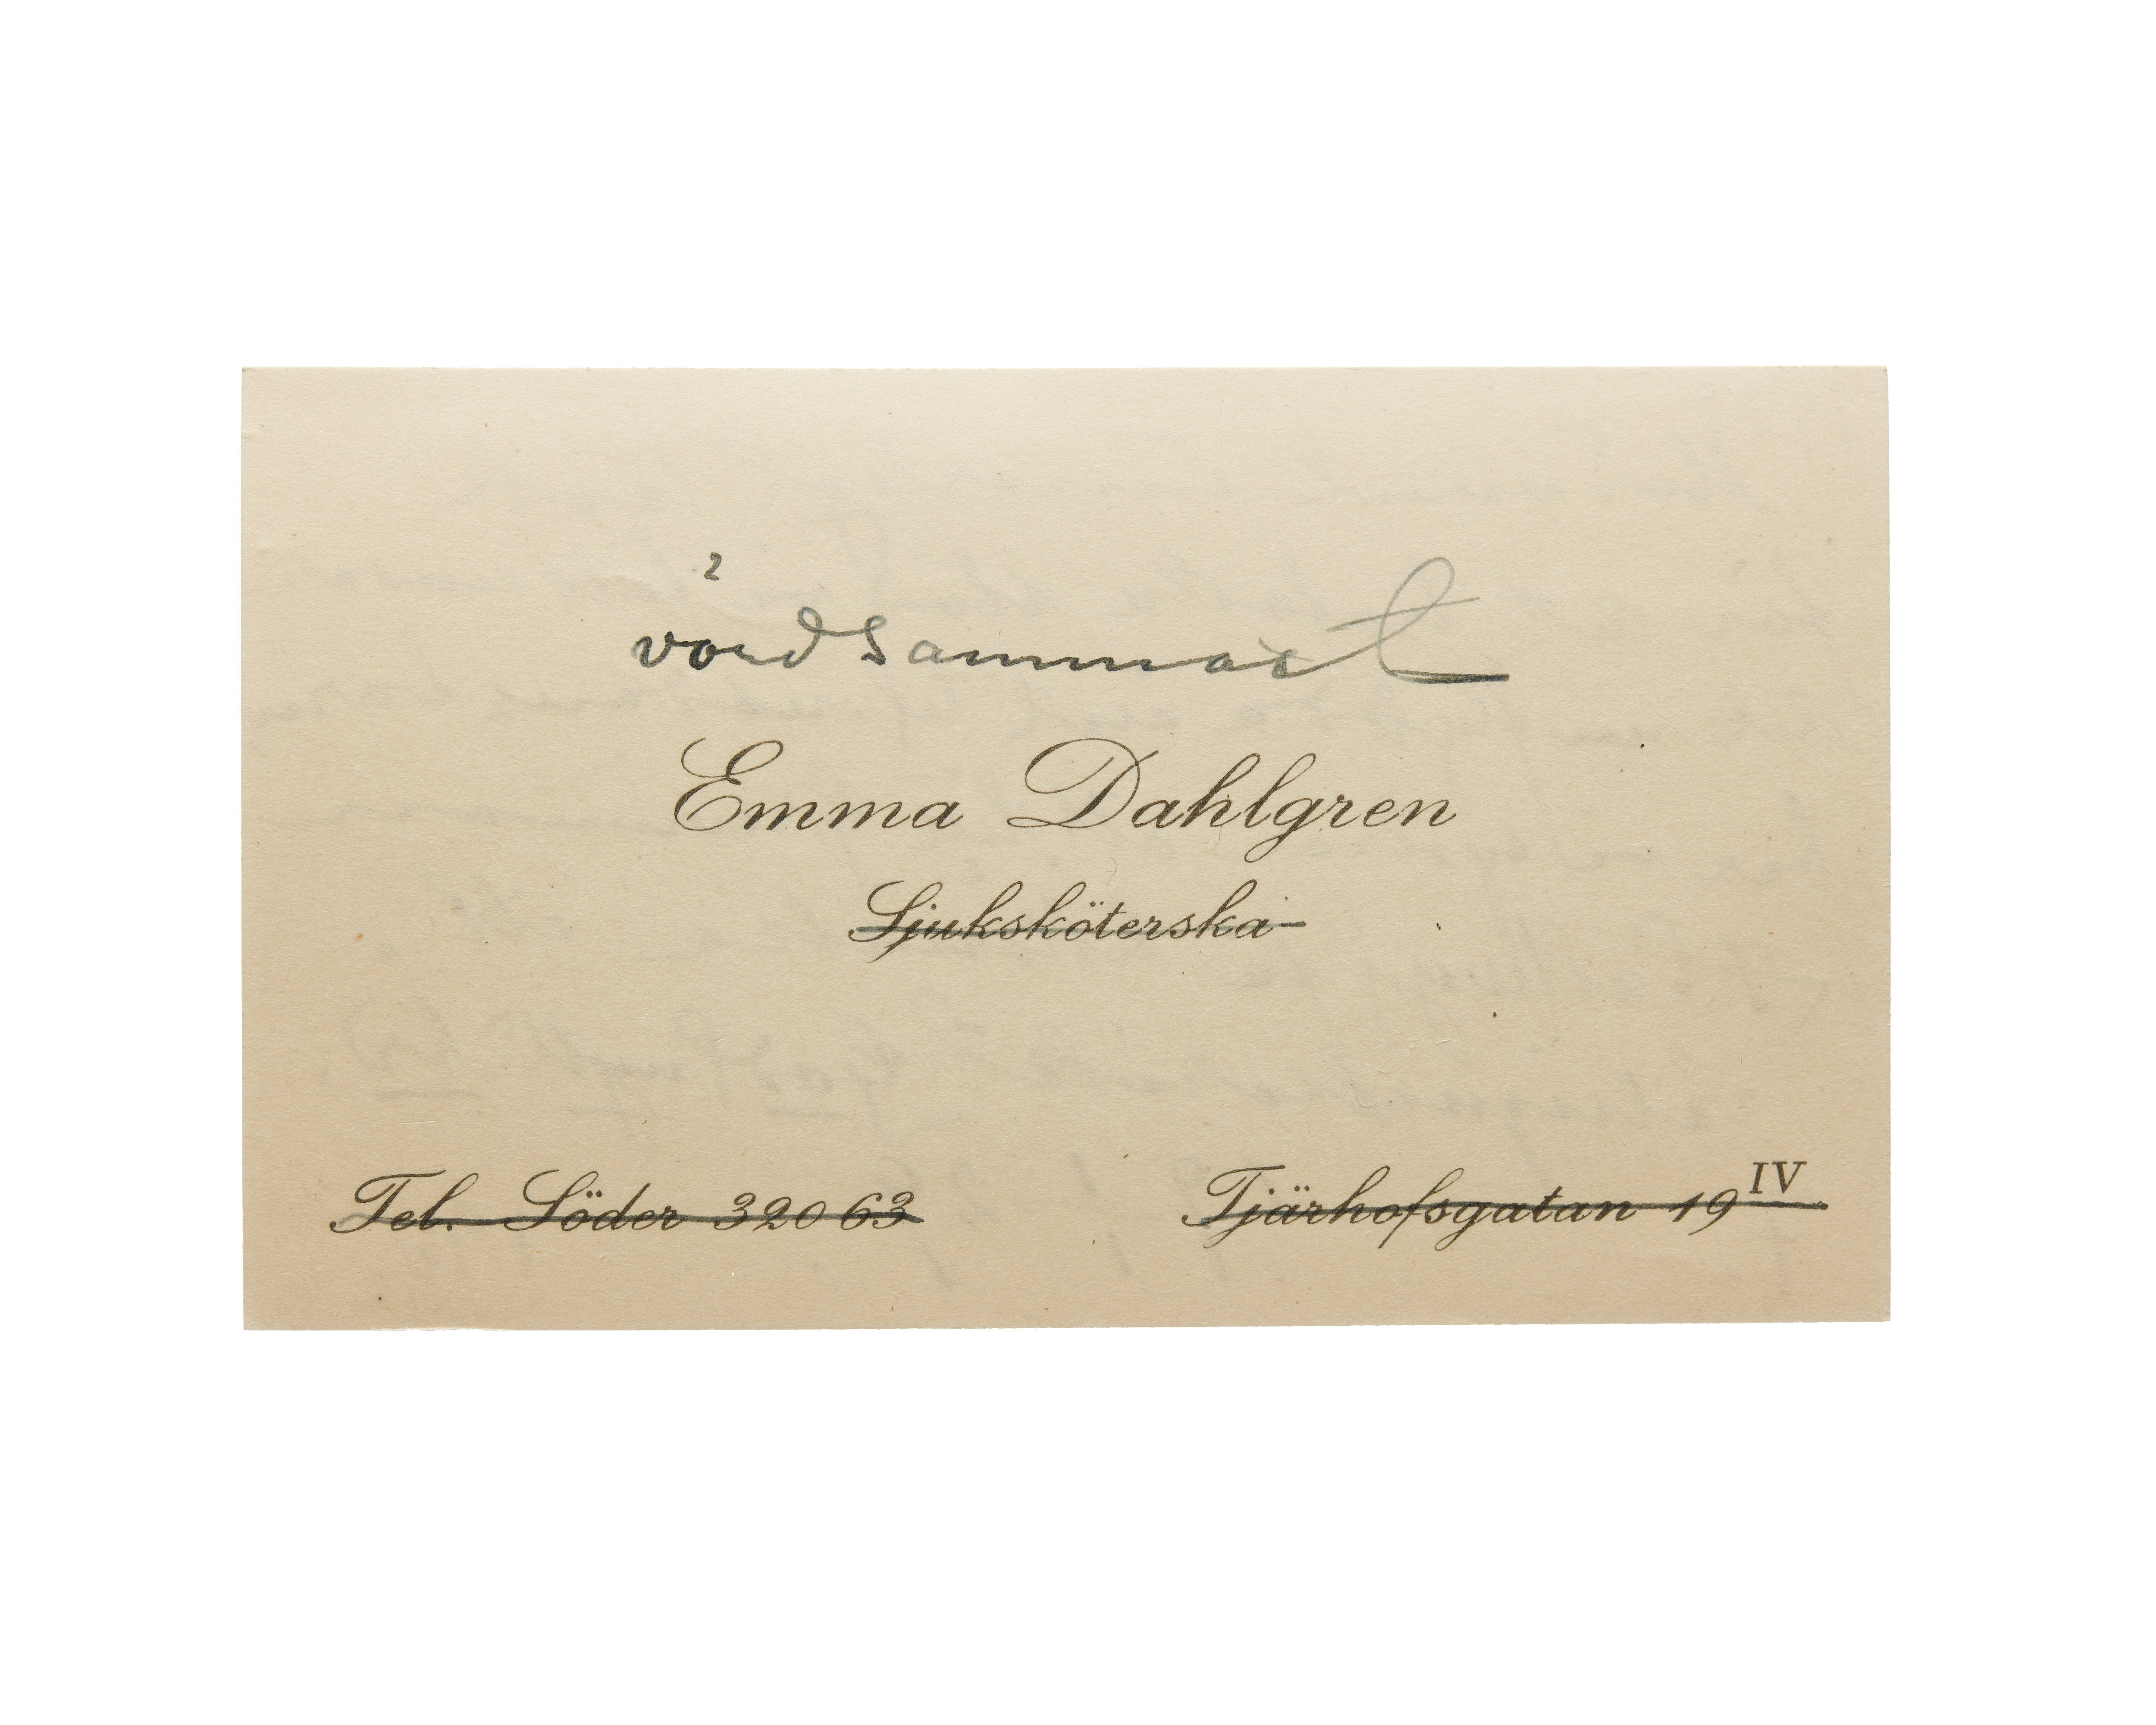 vördsammast
Emma Dahlgren
Sjuksköterska
Tel. Söder 32063
Tjärhofsgatan 19 IV